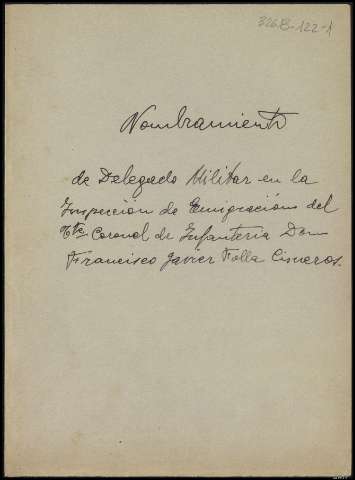 326B-122-1
Nombramiento
de Delegado Militar en la
Inspección de Emigración del
Tte Coronel de Infantería Don
Francisco Javier Folla Cisneros.